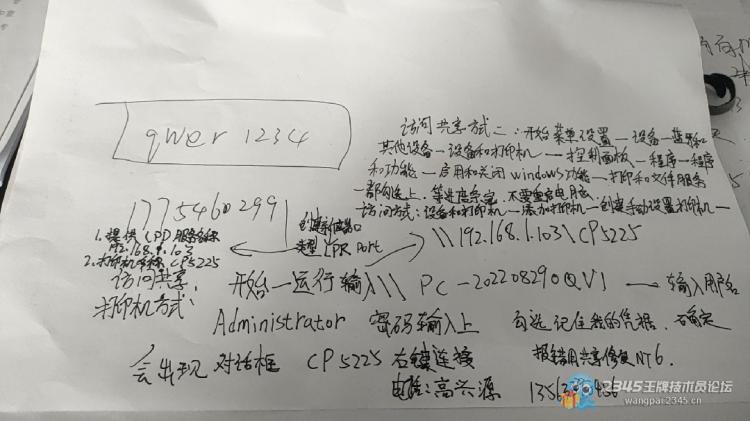 qwer 1234
访问共享方式二:开始菜单设置—设备—蓝牙和
其他设备—设备和打印机—控制面板—程序—程序
和功能—启用和关闭windows功能—打印和文件服务
一部勾选上.等进度条完,不要重启电脑
访问方式:设备和打印机—添加打印机—创建手动设置打印机—
17754602991
创建新端口
类型 LPR Port
\\192.168.1.103\CP5225
1.提供LPD服务名称
192.168.1.103
2.打印机名称 CP5225
访问共享
打印机方式:
开始—运行输入\\ PC-20220829OQVI → 输入用户名
Administrator 密码输入上 勾选记住我的凭据.确定
会出现 对话框 CP5225 右键连接 报错用共享修复NT6.
电脑:高兴源
2345王牌技术员论坛
wangpai.2345.cn